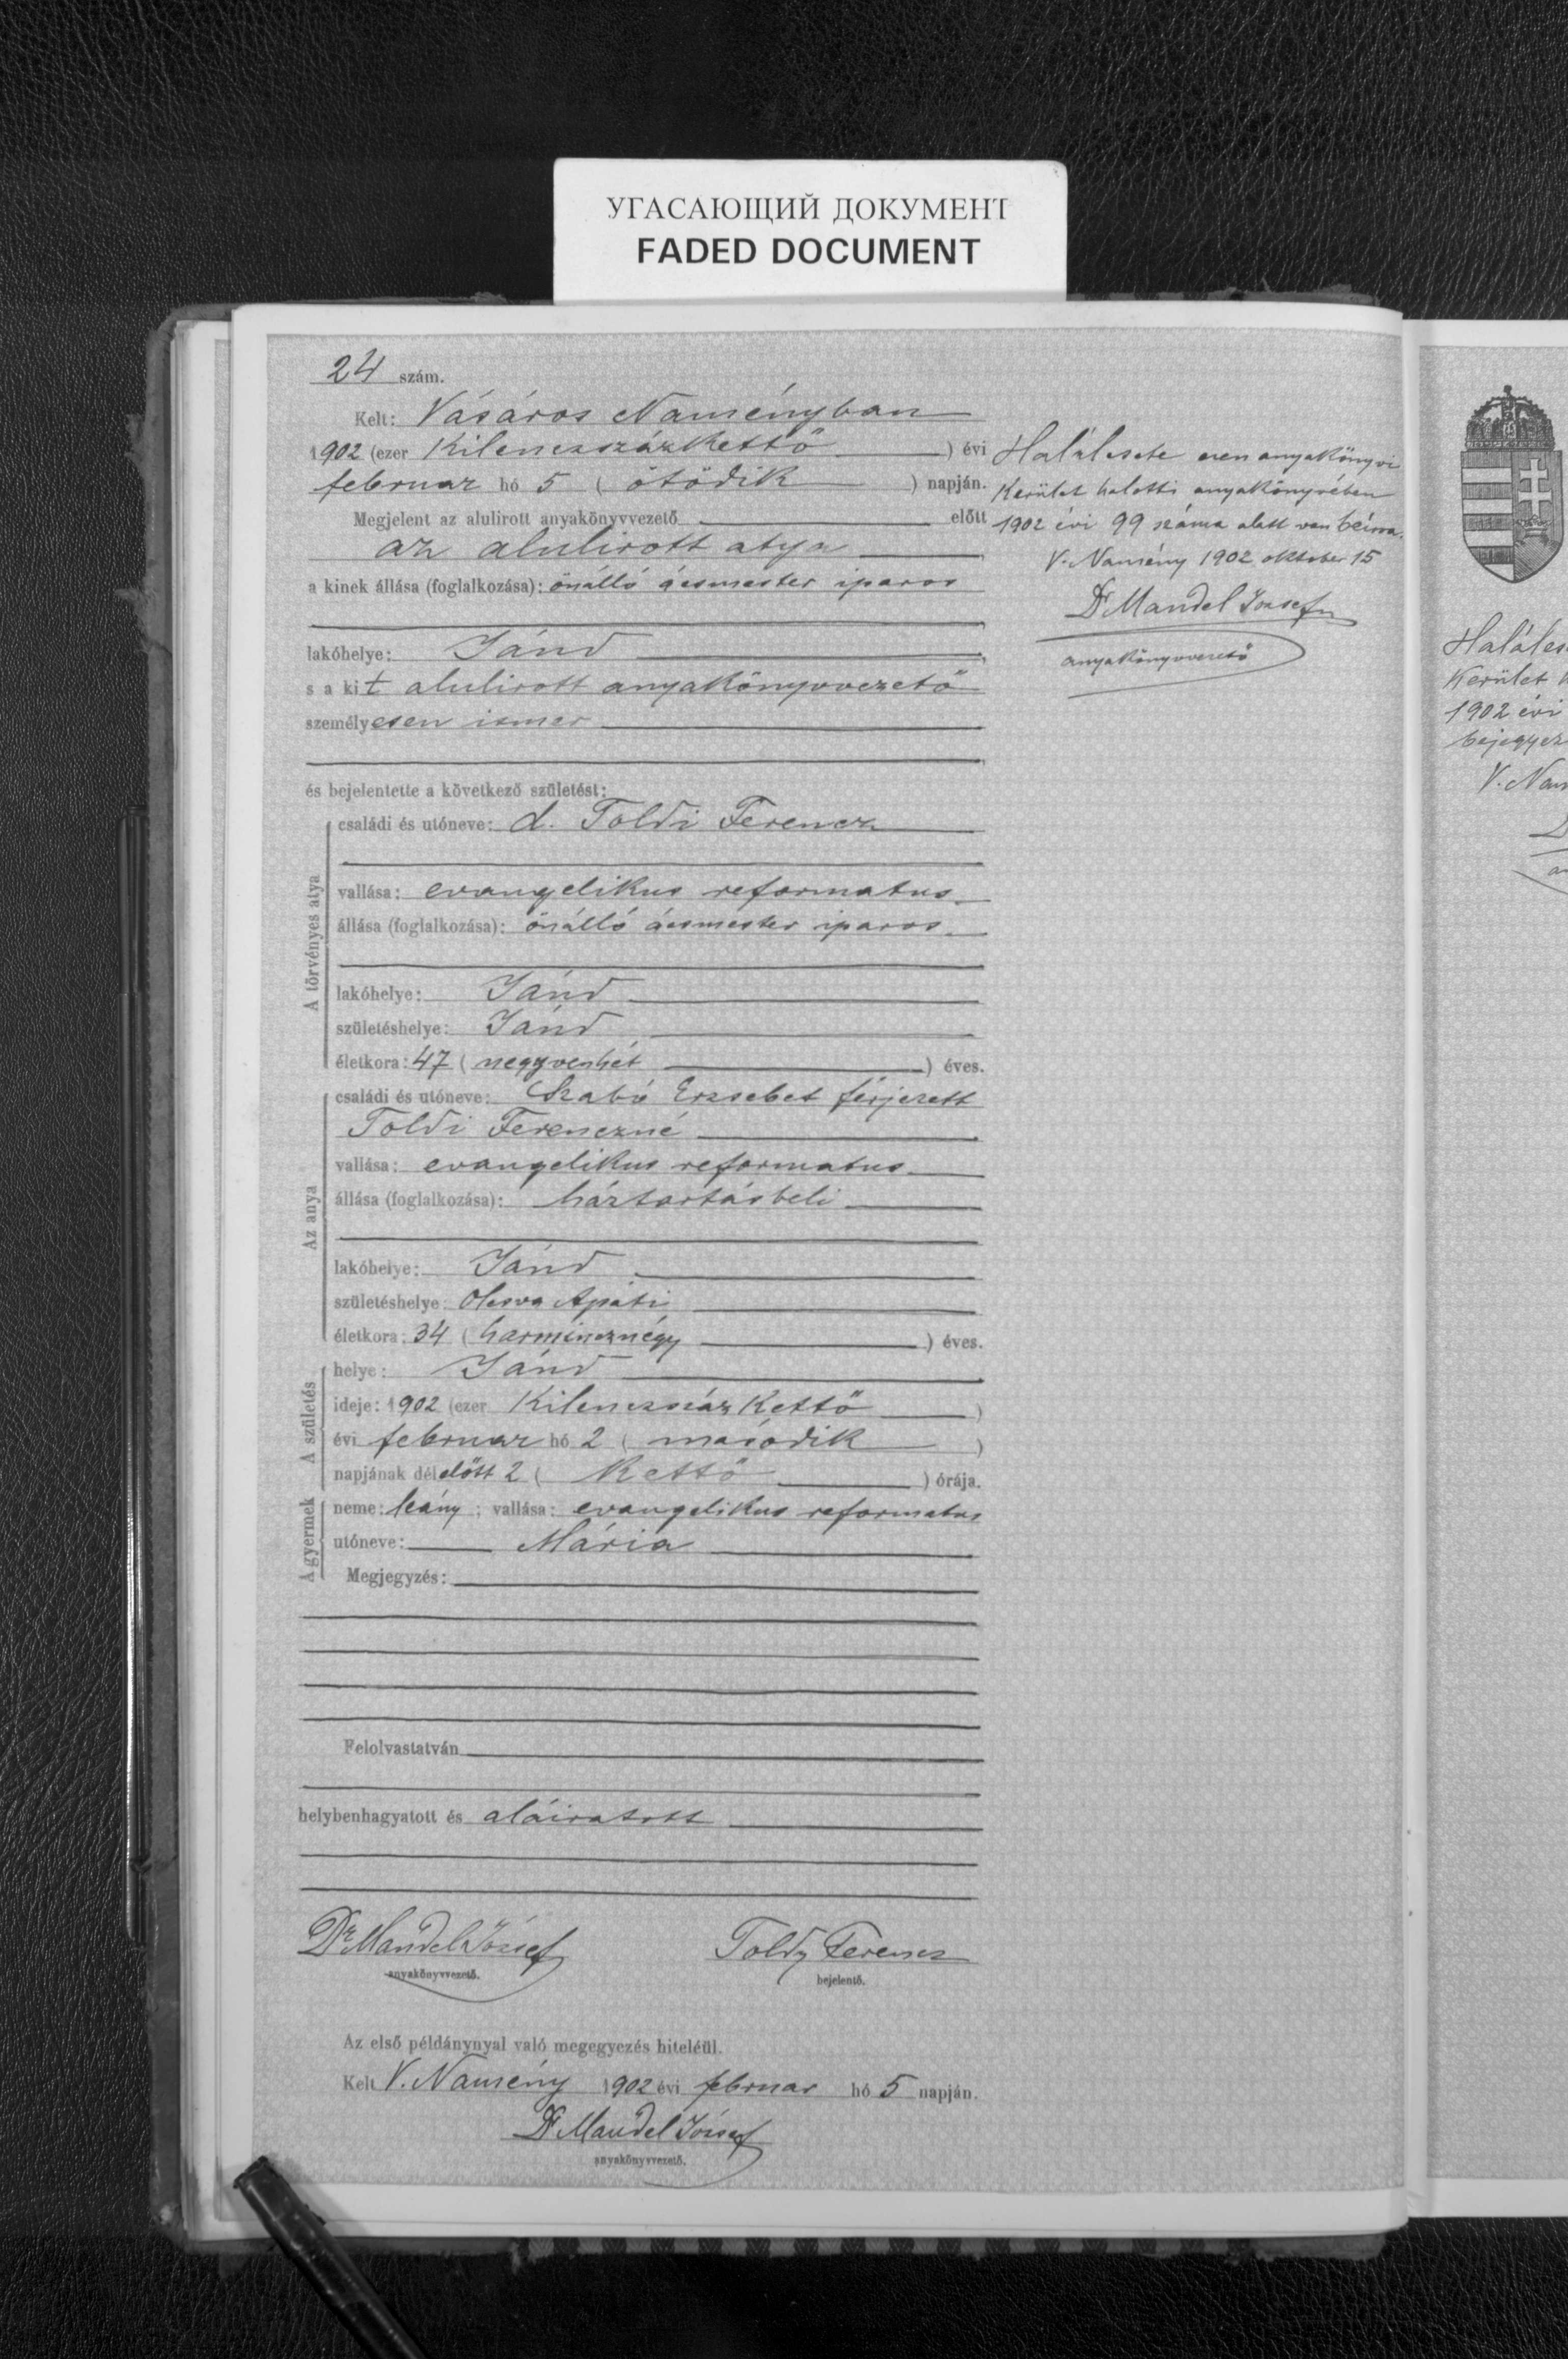 УГАСАЮЩИЙ ДОКУМЕНТ
FADED DOCUMENT
24 szám.
Kelt: Vásáros Naményban
1902 (ezer Kilenczszázkettő) évi
februar hó 5 (ötödik) napján.
Megjelent az alulirott anyakönyvvezető előtt
az alulirott atya
a kinek állása (foglalkozása): önálló ácsmester iparos
lakóhelye: Jánd
s a kit alulirott anyakönyvvezető
személyesen ismer
és bejelentette a következő születést:
A törvényes atya
családi és utóneve: d. Toldi Ferencz
vallása: evangelikus reformatus
állása (foglalkozása): önálló ácsmester iparos
lakóhelye: Jánd
születéshelye: Jánd
életkora: 47 (negyvenhét) éves.
Az anya
családi és utóneve: Szabó Erzsebet férjezett
Toldi Ferenczné
vallása: evangelikus reformatus
állása (foglalkozása): háztartásbeli
lakóhelye: Jánd
születéshelye: Olcsva Apáti
életkora: 34 (harmincznégy) éves.
A születés
helye: Jánd
ideje: 1902 (ezer Kilenczszáz Kettő)
évi februar hó 2 (második)
napjának délelőtt 2 (Kettő) órája.
A gyermek
neme: leány; vallása: evangelikus reformatus
utóneve: Mária
Megjegyzés:
Felolvastatván
helybenhagyatott és aláiratott
Dr Mandel József
anyakönyvvezető.
Toldy Ferencz
bejelentő.
Az első példánynyal való megegyezés hiteléül.
Kelt V. Namény 1902 évi februar hó 5 napján.
Dr Mandel József
anyakönyvvezető.
Halálesete ezen anyakönyvi
Kerület halotti anyakönyvében
1902 évi 99 száma alatt van beirva.
V. Namény 1902 oktober 15
Dr Mandel József
anyakönyvvezető
Haláles
Kerület h
1902 évi
bejegyez
V. Nam